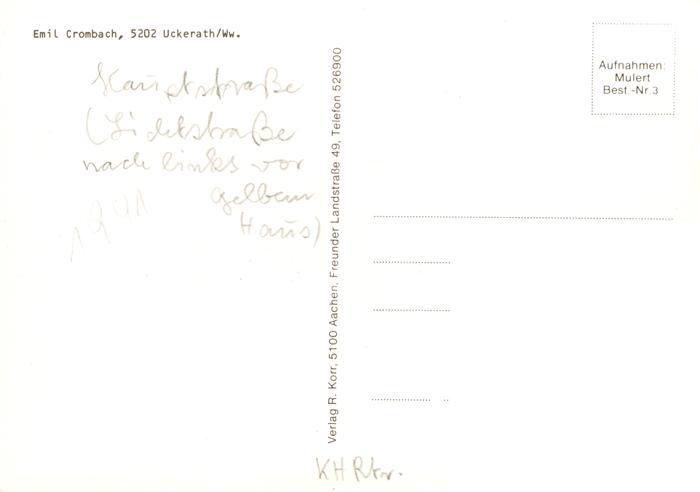 Emil Crombach, 5202 Uckerath/Ww.
Hauptstraße
(Lichtstraße
nach links vor
gelbem
Haus)
1991
Verlag R. Korr, 5100 Aachen, Freunder Landstraße 49, Telefon 526900
Aufnahmen:
Mulert
Best.-Nr.3
KH